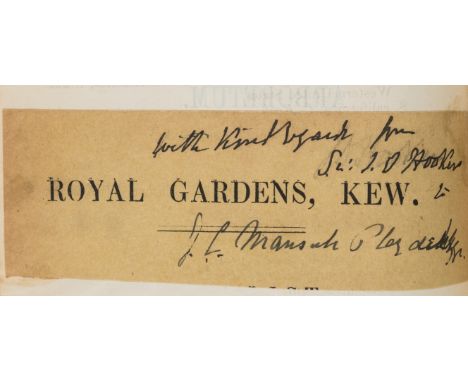 with Kind Regards from
Sir J D Hooker
ROYAL GARDENS, KEW. to
J. C. Mansel Pleydell Esqr.